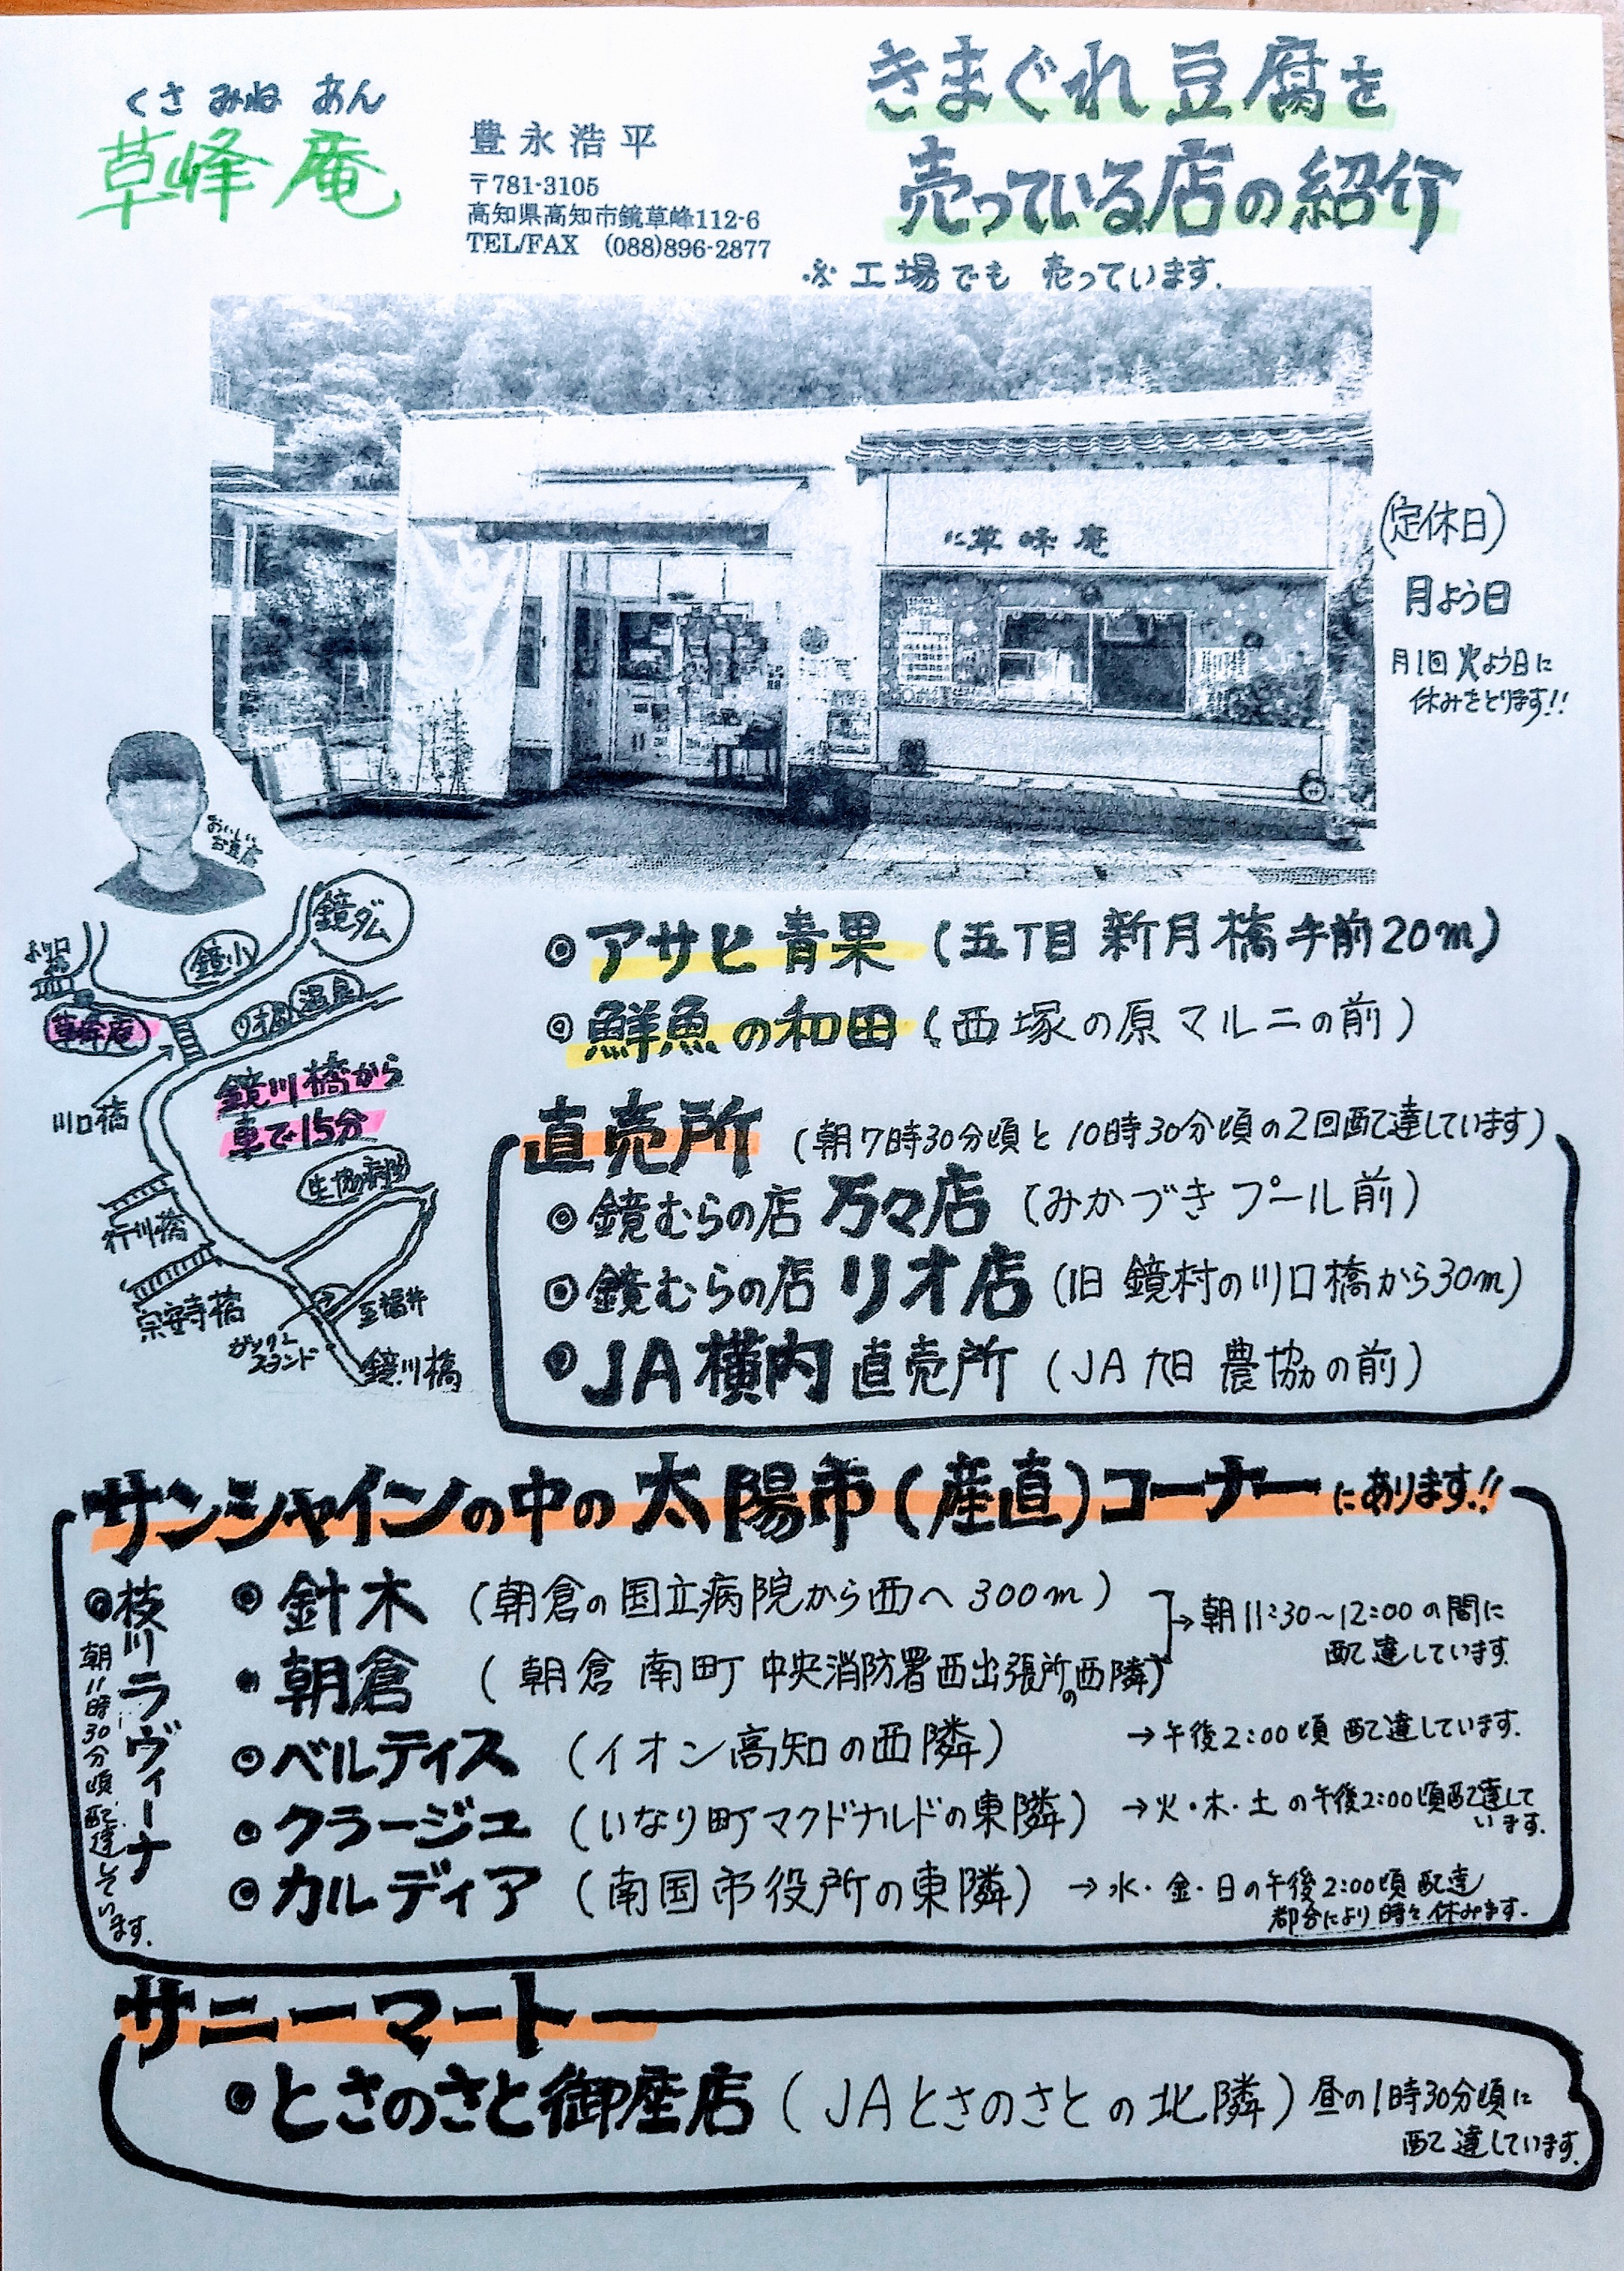 くさ みね あん
草峰庵
豊永浩平
〒781-3105
高知県高知市鏡草峰112-6
TEL/FAX (088)896-2877
きまぐれ豆腐を
売っている店の紹介
※工場でも 売っています.
草峰庵
(定休日)
月よう日
月1回 火よう日に
休みをとります!!
おいしい
鏡ダム
鏡小
リオ
温泉
草峰庵
川口橋
鏡川橋から
車で15分
生協病院
行川橋
宗安寺橋
至福井
ガソリン
スタンド
鏡川橋
◎アサヒ青果 (五丁目 新月橋手前20m)
◎鮮魚の和田 (西塚の原マルニの前)
直売所 (朝7時30分頃と10時30分頃の2回配達しています)
◎鏡むらの店 万々店 (みかづきプール前)
◎鏡むらの店 リオ店 (旧 鏡村の川口橋から30m)
◎JA横内直売所 (JA旭 農協の前)
サンシャインの中の太陽市(産直)コーナーにあります!!
◎枝川ラヴィーナ
朝11時30分頃配達しています.
◎針木 (朝倉の国立病院から西へ300m)
→朝11:30~12:00の間に
配達しています.
・朝倉 (朝倉南町 中央消防署西出張所の西隣)
◎ベルティス (イオン高知の西隣) →午後2:00頃 配達しています.
◎クラージュ (いなり町マクドナルドの東隣) →火・木・土の午後2:00頃配達して
います.
◎カルディア (南国市役所の東隣) →水・金・日の午後2:00頃 配達
都合により時々休みます.
サニーマート
◎とさのさと御座店 (JAとさのさとの北隣) 昼の1時30分頃に
配達しています.